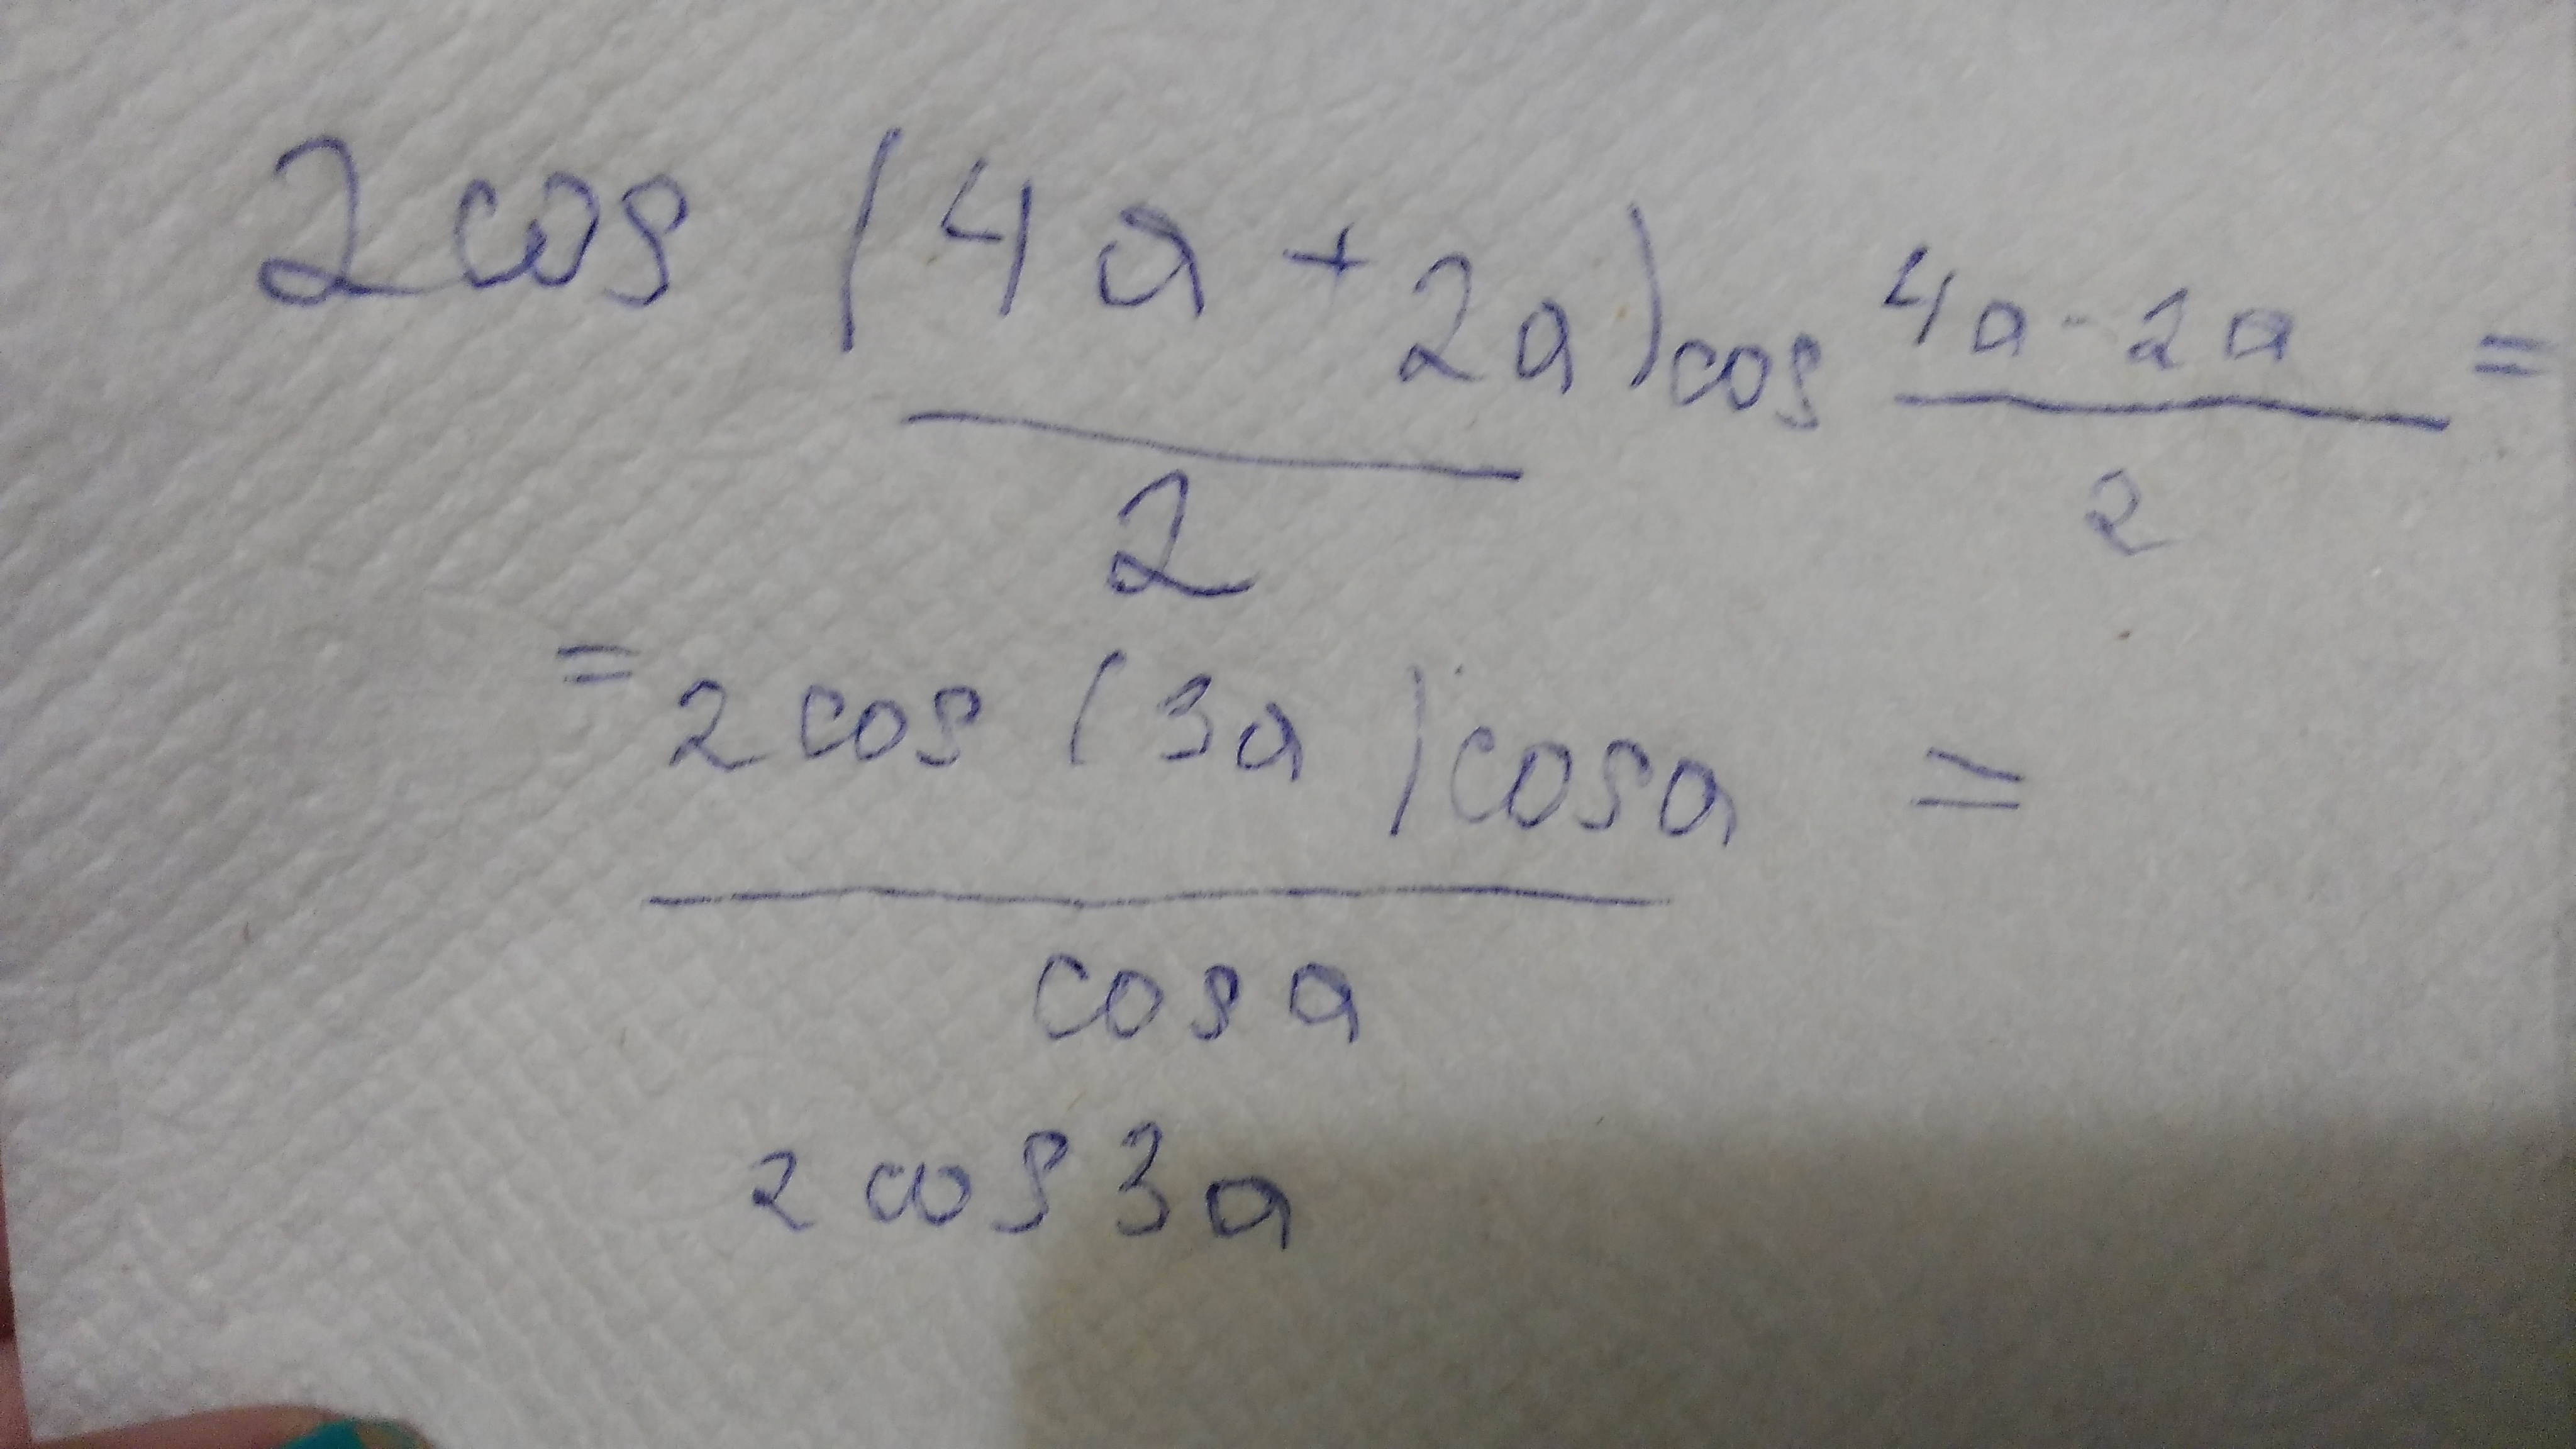 2 cos (4a + 2a) cos 4a - 2a =
2 2
= 2 cos (3a) cos a =
cos a
2 cos 3a